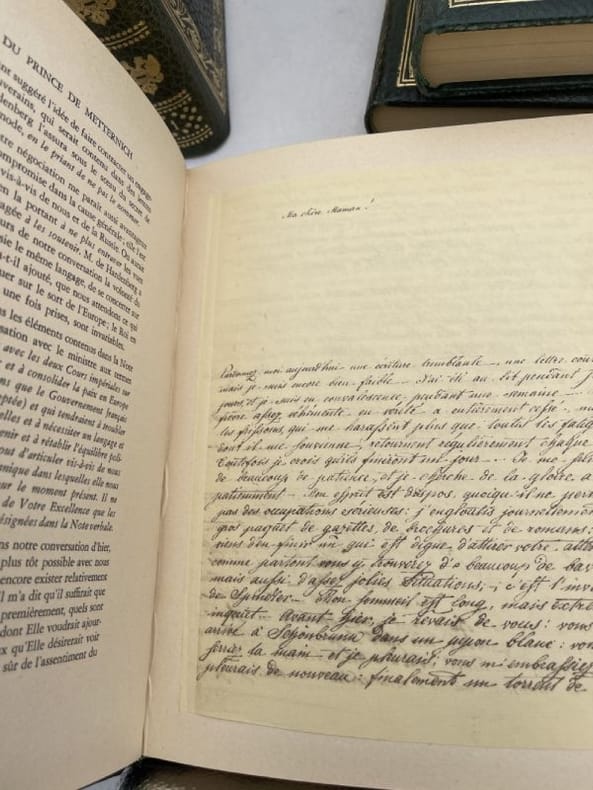 DU PRINCE DE METTERNICH
nt suggéré l'idée de faire contracter un engage-
uverains, qui serait contenu dans des
denberg l'assura sous le sceau du secret
mode, en le priant de ne pas le nommer.
tre négociation me paraît aussi avantageux
ompromise dans la cause générale; elle l'est
vis-à-vis de nous et de la Russie. On aurait
en la portant à ne plus entraver les vues
agée à les soutenir. M. de Hardenberg a
urs de notre conversation la volonté du
sie le même langage, de se concerter
a-t-il ajouté, que nous attendons et qui
uer sur le sort de l'Europe; le Roi en
une fois prises, sont invariables.
ns les éléments contenus dans la Note
sation avec le ministre aux termes
avec les deux Cours impériales sur
et à consolider la paix en Europe
ons que le Gouvernement français
ptée) et qui tendraient à troubler
elles et à nécessiter un langage et
enir et à rétablir l'équilibre poli-
ous d'articuler vis-à-vis de nous
nique dans lesquelles elle nous
ur le moment présent. Il ne
de Votre Excellence que les
désignées dans la Note verbale.
ns notre conversation d'hier,
plus tôt possible avec nous
encore exister relativement
Il m'a dit qu'il suffirait que
premièrement, quels sont
dont Elle voudrait ajour-
ux qu'Elle désirerait voir
sûr de l'assentiment du
Ma chère Maman!
Pardonnez moi aujourd'hui une écriture tremblante, une lettre cou
mais je suis encore bien faible. J'ai été au lit pendant
jours, et je suis en convalescence, pendant une semaine
fièvre assez véhémente en vérité a entièrement cessé,
les frissons, qui me harassent plus que toutes les fatig
dont il me souvienne, retournent regulièrement chaque
Toutefois je crois qu'ils finiront un jour. Je me
de beaucoup de patience, et je cherche de la gloire a
patiemment. Mon esprit est dispos, quoiqu'il ne per
pas des occupations sérieuses: j'engloutis journellement
gros paquet de gazettes de brochures et de romans:
viens d'en finir un qui est digne d'attirer votre atte
comme partout vous y trouverez de beaucoup de bav
mais aussi d'assez jolies situations; c'est l'inv
de Spindler. Mon sommeil est long, mais extre
inquiet. Avant hier, je revais de vous: vous
arrive à Schönbrunn dans un jupon blanc: vou
serrer la main et je pleurais; vous m'embrassiez
pleurais de nouveau: finalement un torrent de